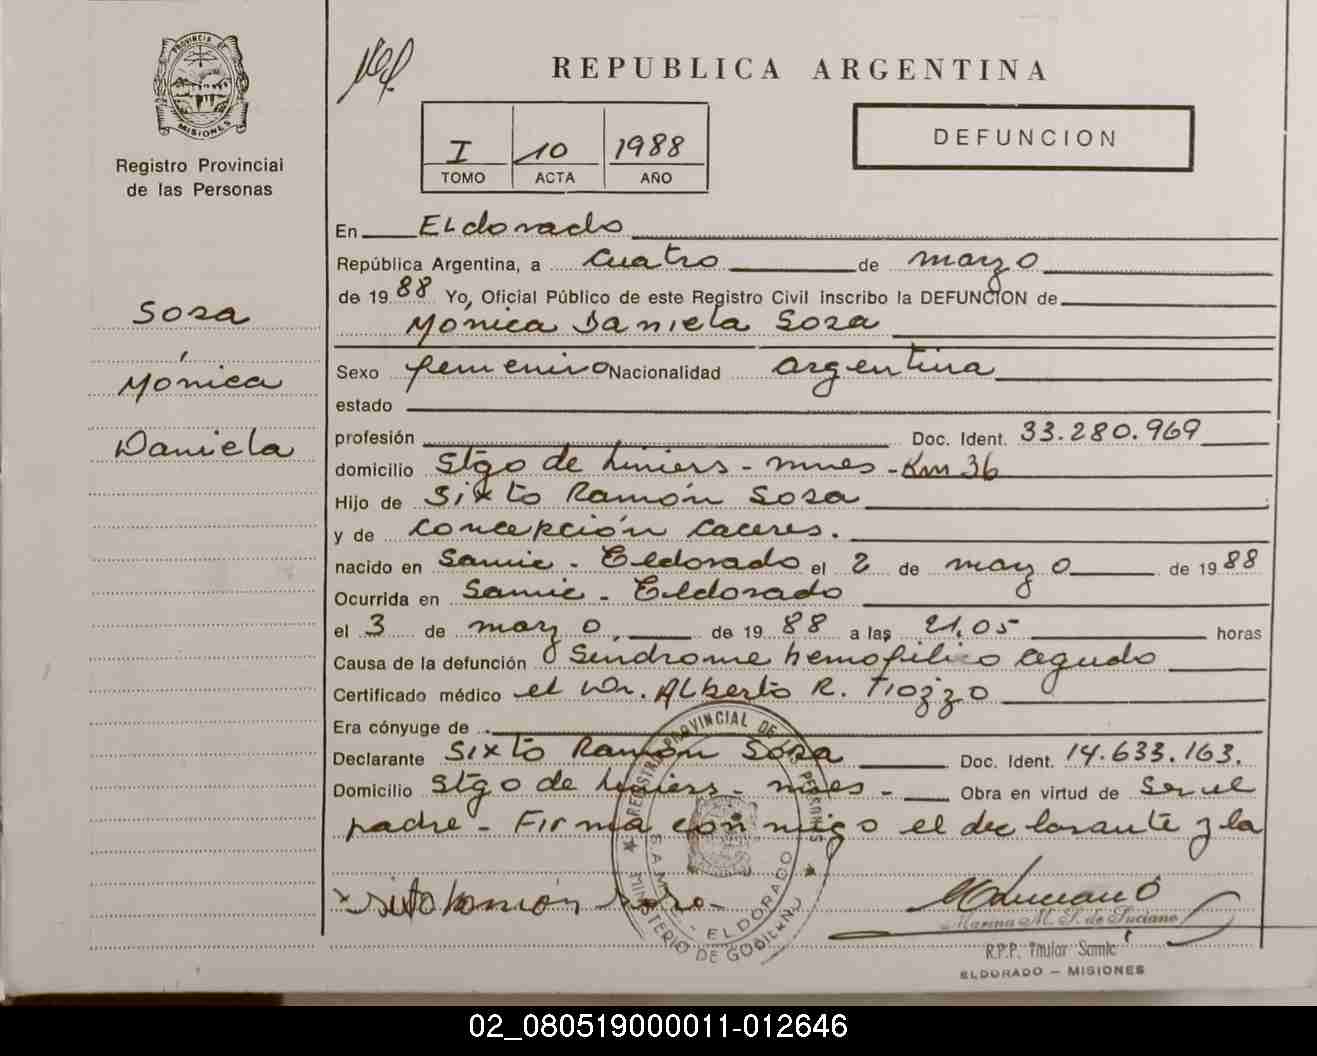 PROVINCIA DE
MISIONES
Registro Provincial
de las Personas
Sosa
Mónica
Daniela
REPUBLICA ARGENTINA
I 10 1988
TOMO ACTA AÑO
DEFUNCION
En Eldorado
República Argentina, a cuatro de marzo
de 1988 Yo, Oficial Público de este Registro Civil inscribo la DEFUNCION de
Mónica Daniela Sosa
Sexo femenino Nacionalidad argentina
estado
profesión Doc. Ident. 33.280.969
domicilio Stgo de Liniers - mnes - Km 36
Hijo de Sixto Ramón Sosa
y de Concepción Caceres.
nacido en Samic - Eldorado el 2 de marzo de 1988
Ocurrida en Samic - Eldorado
el 3 de marzo de 1988 a las 21,05 horas
Causa de la defunción Sindrome hemofilico agudo
Certificado médico el Dr. Alberto R. Tiozzo
Era cónyuge de
Declarante Sixto Ramón Sosa Doc. Ident. 14.633.163.
Domicilio Stgo de Liniers - mnes - Obra en virtud de Ser el
padre - Firma conmigo el declarante y la
REGISTRO PROVINCIAL DE LAS PERSONAS
SAMIC - ELDORADO
MINISTERIO DE GOBIERNO
Marina M. S. de Luciano
R.P.P. Titular Samic
ELDORADO - MISIONES
02_080519000011-012646